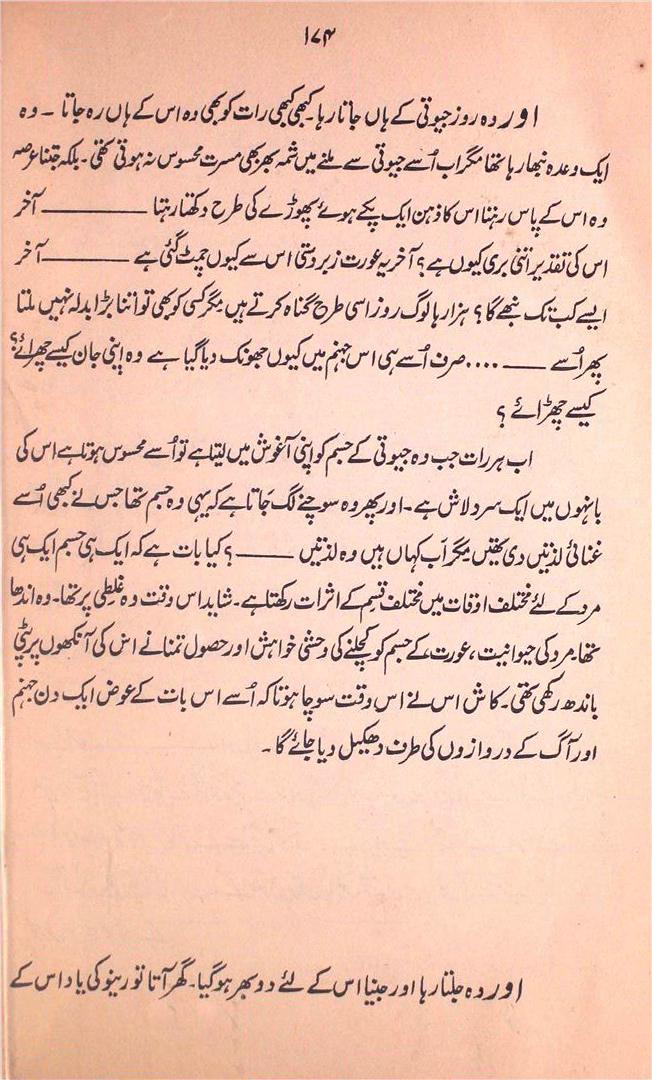 ۱۷۴
اور وہ روز جیوتی کے ہاں جاتا رہا۔ کبھی کبھی رات کو بھی وہ اس کے ہاں رہ جاتا ۔ وہ
ایک وعدہ نبھا رہا تھا مگر اب اُسے جیوتی سے ملنے میں شمہ بھر بھی مسرت محسوس نہ ہوتی تھی۔ بلکہ جتنا عرصہ
وہ اس کے پاس رہتا اس کا ذہن ایک پکے ہوئے پھوڑے کی طرح دکھتا رہتا ——— آخر
اس کی تقدیر اتنی بری کیوں ہے؟ آخر یہ عورت زبردستی اس سے کیوں چمٹ گئی ہے ——— آخر
ایسے کب تک نبھے گا؟ ہزارہا لوگ روز اسی طرح گناہ کرتے ہیں مگر کسی کو بھی تو اتنا بڑا بدلہ نہیں ملتا
پھر اُسے —— .... صرف اُسے ہی اس جہنم میں کیوں جھونک دیا گیا ہے وہ اپنی جان کیسے چھڑائے؟
کیسے چھڑائے ؟
اب ہر رات جب وہ جیوتی کے جسم کو اپنی آغوش میں لیتا ہے تو اُسے محسوس ہوتا ہے اس کی
بانہوں میں ایک سرد لاش ہے۔ اور پھر وہ سوچنے لگ جاتا ہے کہ یہی وہ جسم تھا جس نے کبھی اُسے
غنائی لذتیں دی تھیں مگر اب کہاں ہیں وہ لذتیں ——— ؟ کیا بات ہے کہ ایک ہی جسم ایک ہی
مرد کے لئے مختلف اوقات میں مختلف قسم کے اثرات رکھتا ہے۔ شاید اس وقت وہ غلطی پر تھا۔ وہ اندھا
تھا۔ مرد کی حیوانیت، عورت کے جسم کو کچلنے کی وحشی خواہش اور حصول تمنا نے اس کی آنکھوں پر پٹی
باندھ رکھی تھی۔ کاش اس نے اس وقت سوچا ہوتا کہ اُسے اس بات کے عوض ایک دن جہنم
اور آگ کے دروازوں کی طرف دھکیل دیا جائے گا ۔
اور وہ جلتا رہا اور جینا اس کے لئے دوبھر ہو گیا۔ گھر آتا تو رینو کی یاد اس کے